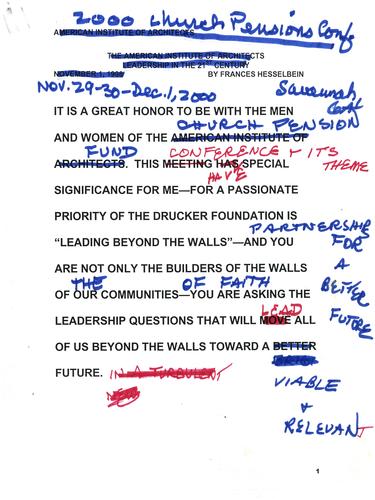 2000 Church Pensions Conf
AMERICAN INSTITUTE OF ARCHITECTS
THE AMERICAN INSTITUTE OF ARCHITECTS
LEADERSHIP IN THE 21ST CENTURY
NOVEMBER 1, 1999 BY FRANCES HESSELBEIN
NOV. 29-30-DEC. 1, 2000 Savannah,
IT IS A GREAT HONOR TO BE WITH THE MEN
CHURCH PENSION
AND WOMEN OF THE AMERICAN INSTITUTE OF
FUND CONFERENCE & ITS
ARCHITECTS. THIS MEETING HAS SPECIAL THEME
HAVE
SIGNIFICANCE FOR ME—FOR A PASSIONATE
PRIORITY OF THE DRUCKER FOUNDATION IS
PARTNERSHIP
"LEADING BEYOND THE WALLS"—AND YOU FOR
ARE NOT ONLY THE BUILDERS OF THE WALLS A
THE OF FAITH BETTER
OF OUR COMMUNITIES—YOU ARE ASKING THE FUTURE
LEAD
LEADERSHIP QUESTIONS THAT WILL MOVE ALL
OF US BEYOND THE WALLS TOWARD A BETTER
FUTURE. IN A TURBULENT
NEW
VIABLE
&
RELEVANT
1